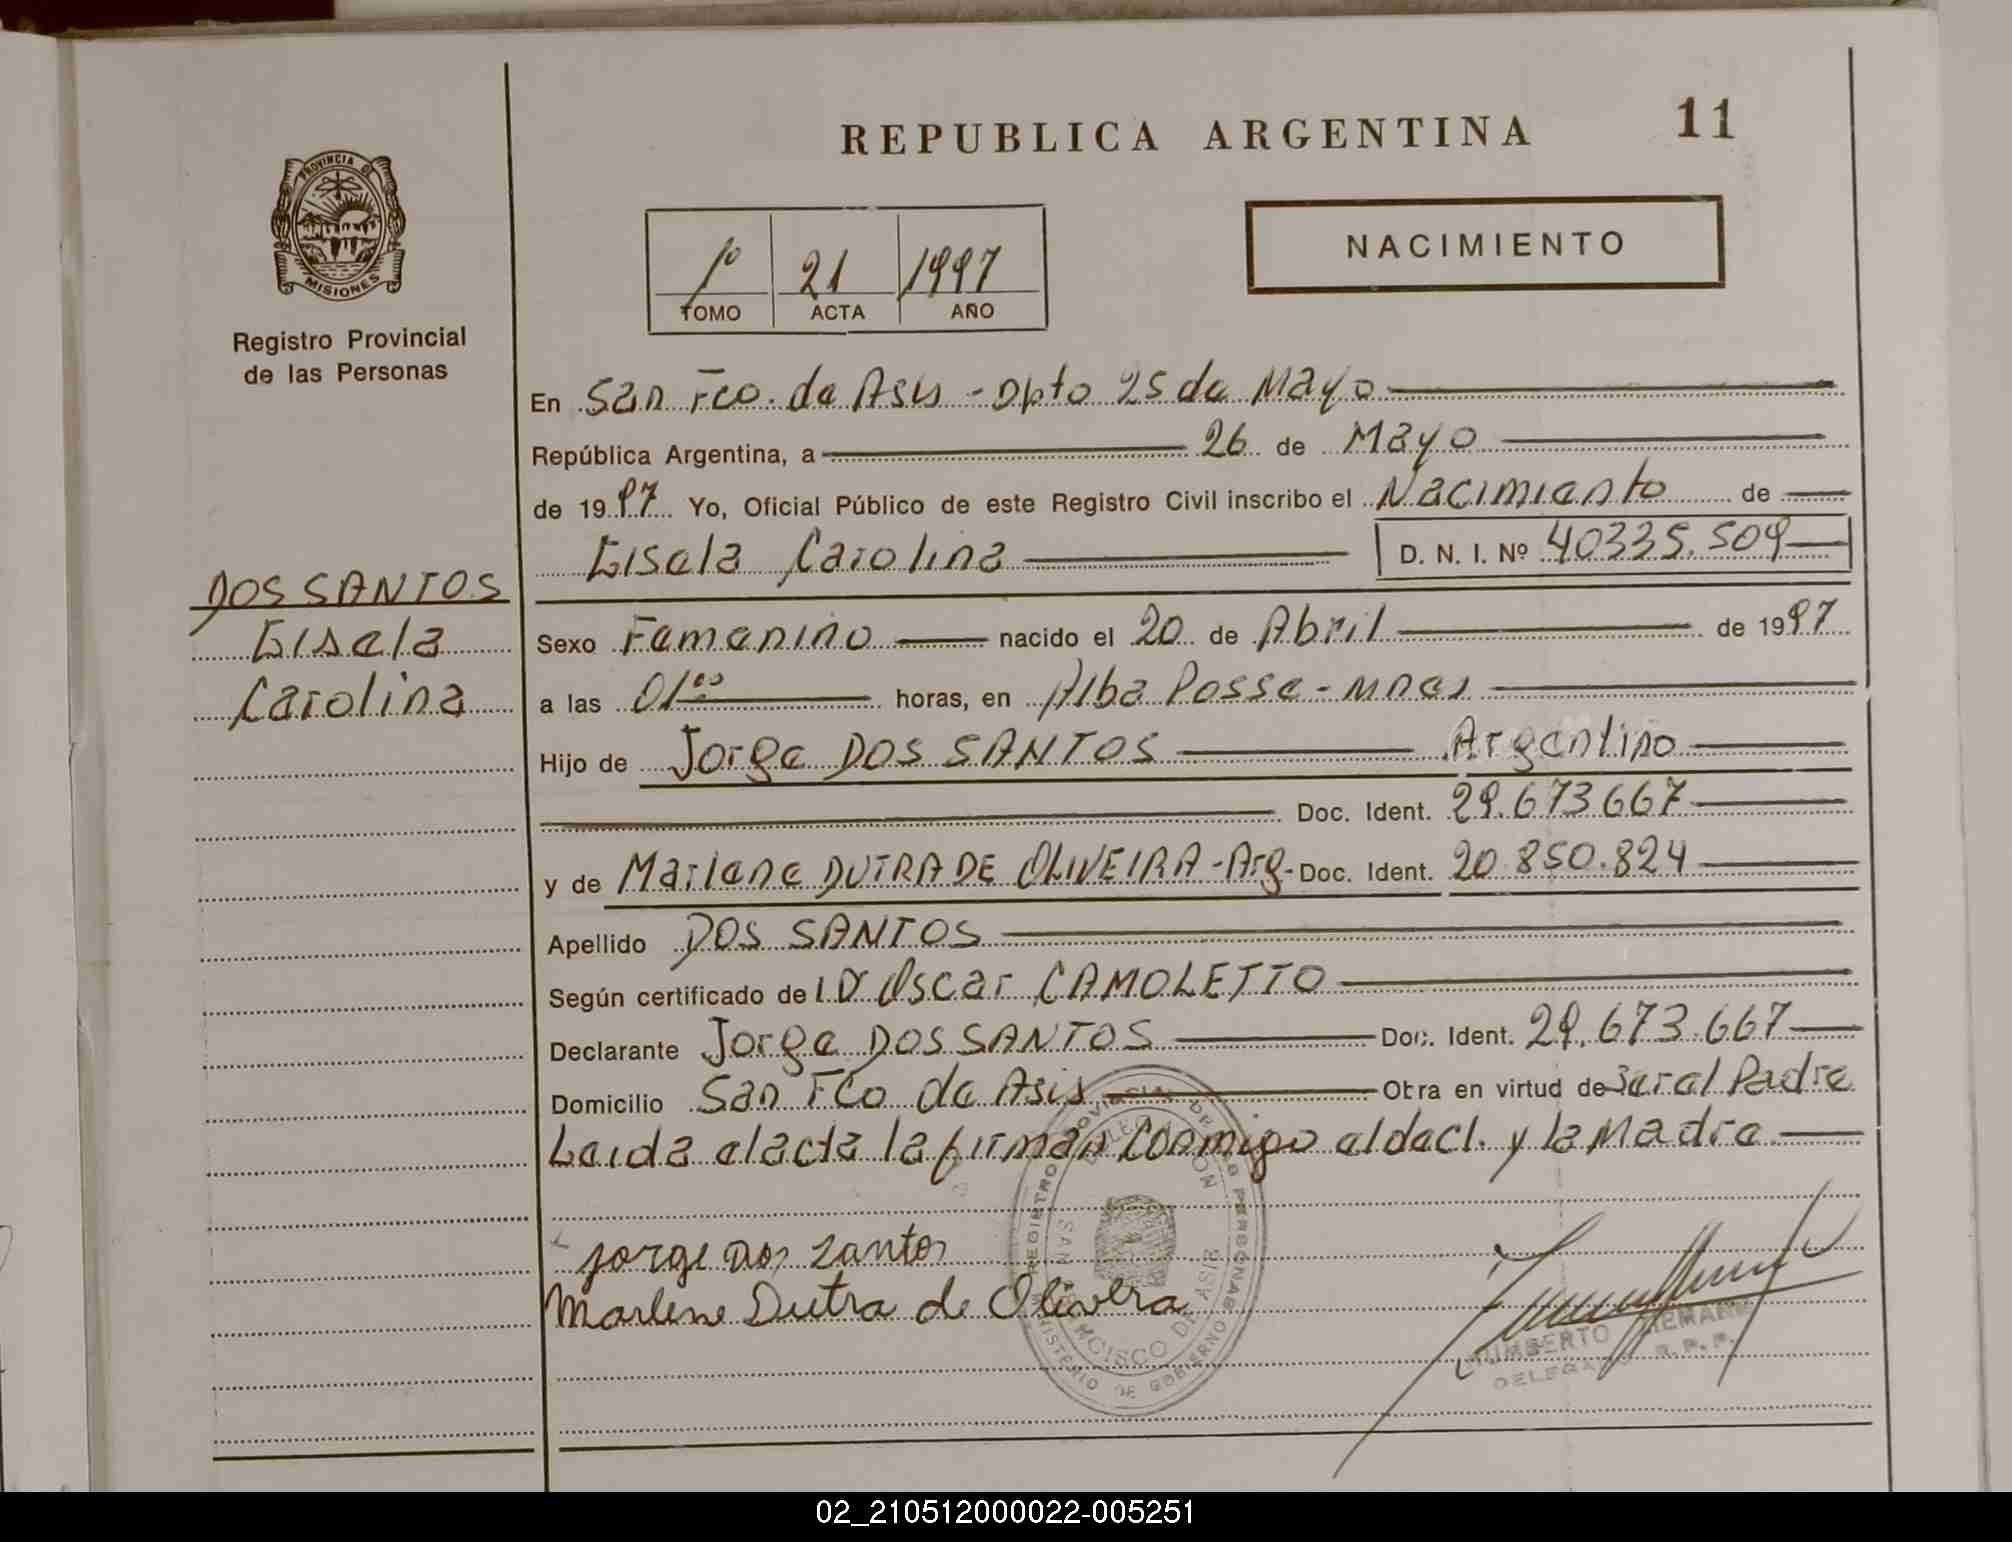 REPUBLICA ARGENTINA
11
PROVINCIA DE
MISIONES
Registro Provincial
de las Personas
1º 21 1997
TOMO ACTA AÑO
NACIMIENTO
En San Fco. de Asis - Dpto 25 de Mayo
República Argentina, a 26 de Mayo
de 1997 Yo, Oficial Público de este Registro Civil inscribo el Nacimiento de
Gisela Carolina D. N. I. Nº 40335.509
DOS SANTOS
Gisela
Carolina
Sexo Femenino nacido el 20 de Abril de 1997
a las 01⁰⁰ horas, en Alba Posse - Mnes
Hijo de Jorge DOS SANTOS Argentino
Doc. Ident. 29.673.667
y de Marlene DUTRA DE OLIVEIRA - Arg. Doc. Ident. 20.850.824
Apellido DOS SANTOS
Según certificado de Dr Oscar CAMOLETTO
Declarante Jorge DOS SANTOS Doc. Ident. 29.673.667
Domicilio San Fco de Asis Otra en virtud de Ser el Padre
Leida el acta la firman conmigo el decl. y la Madre
Jorge Dos Santos
Marlene Dutra de Olivera
REGISTRO PROVINCIAL DE LAS PERSONAS
MINISTERIO DE GOBIERNO
DELEGACION
SAN FRANCISCO DE ASIS
HUMBERTO
DELEGADO R. P. P.
02_210512000022-005251